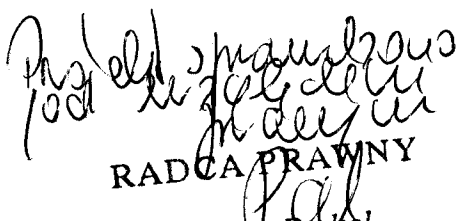 Projekt sprawdzono
pod względem
prawnym
RADCA PRAWNY